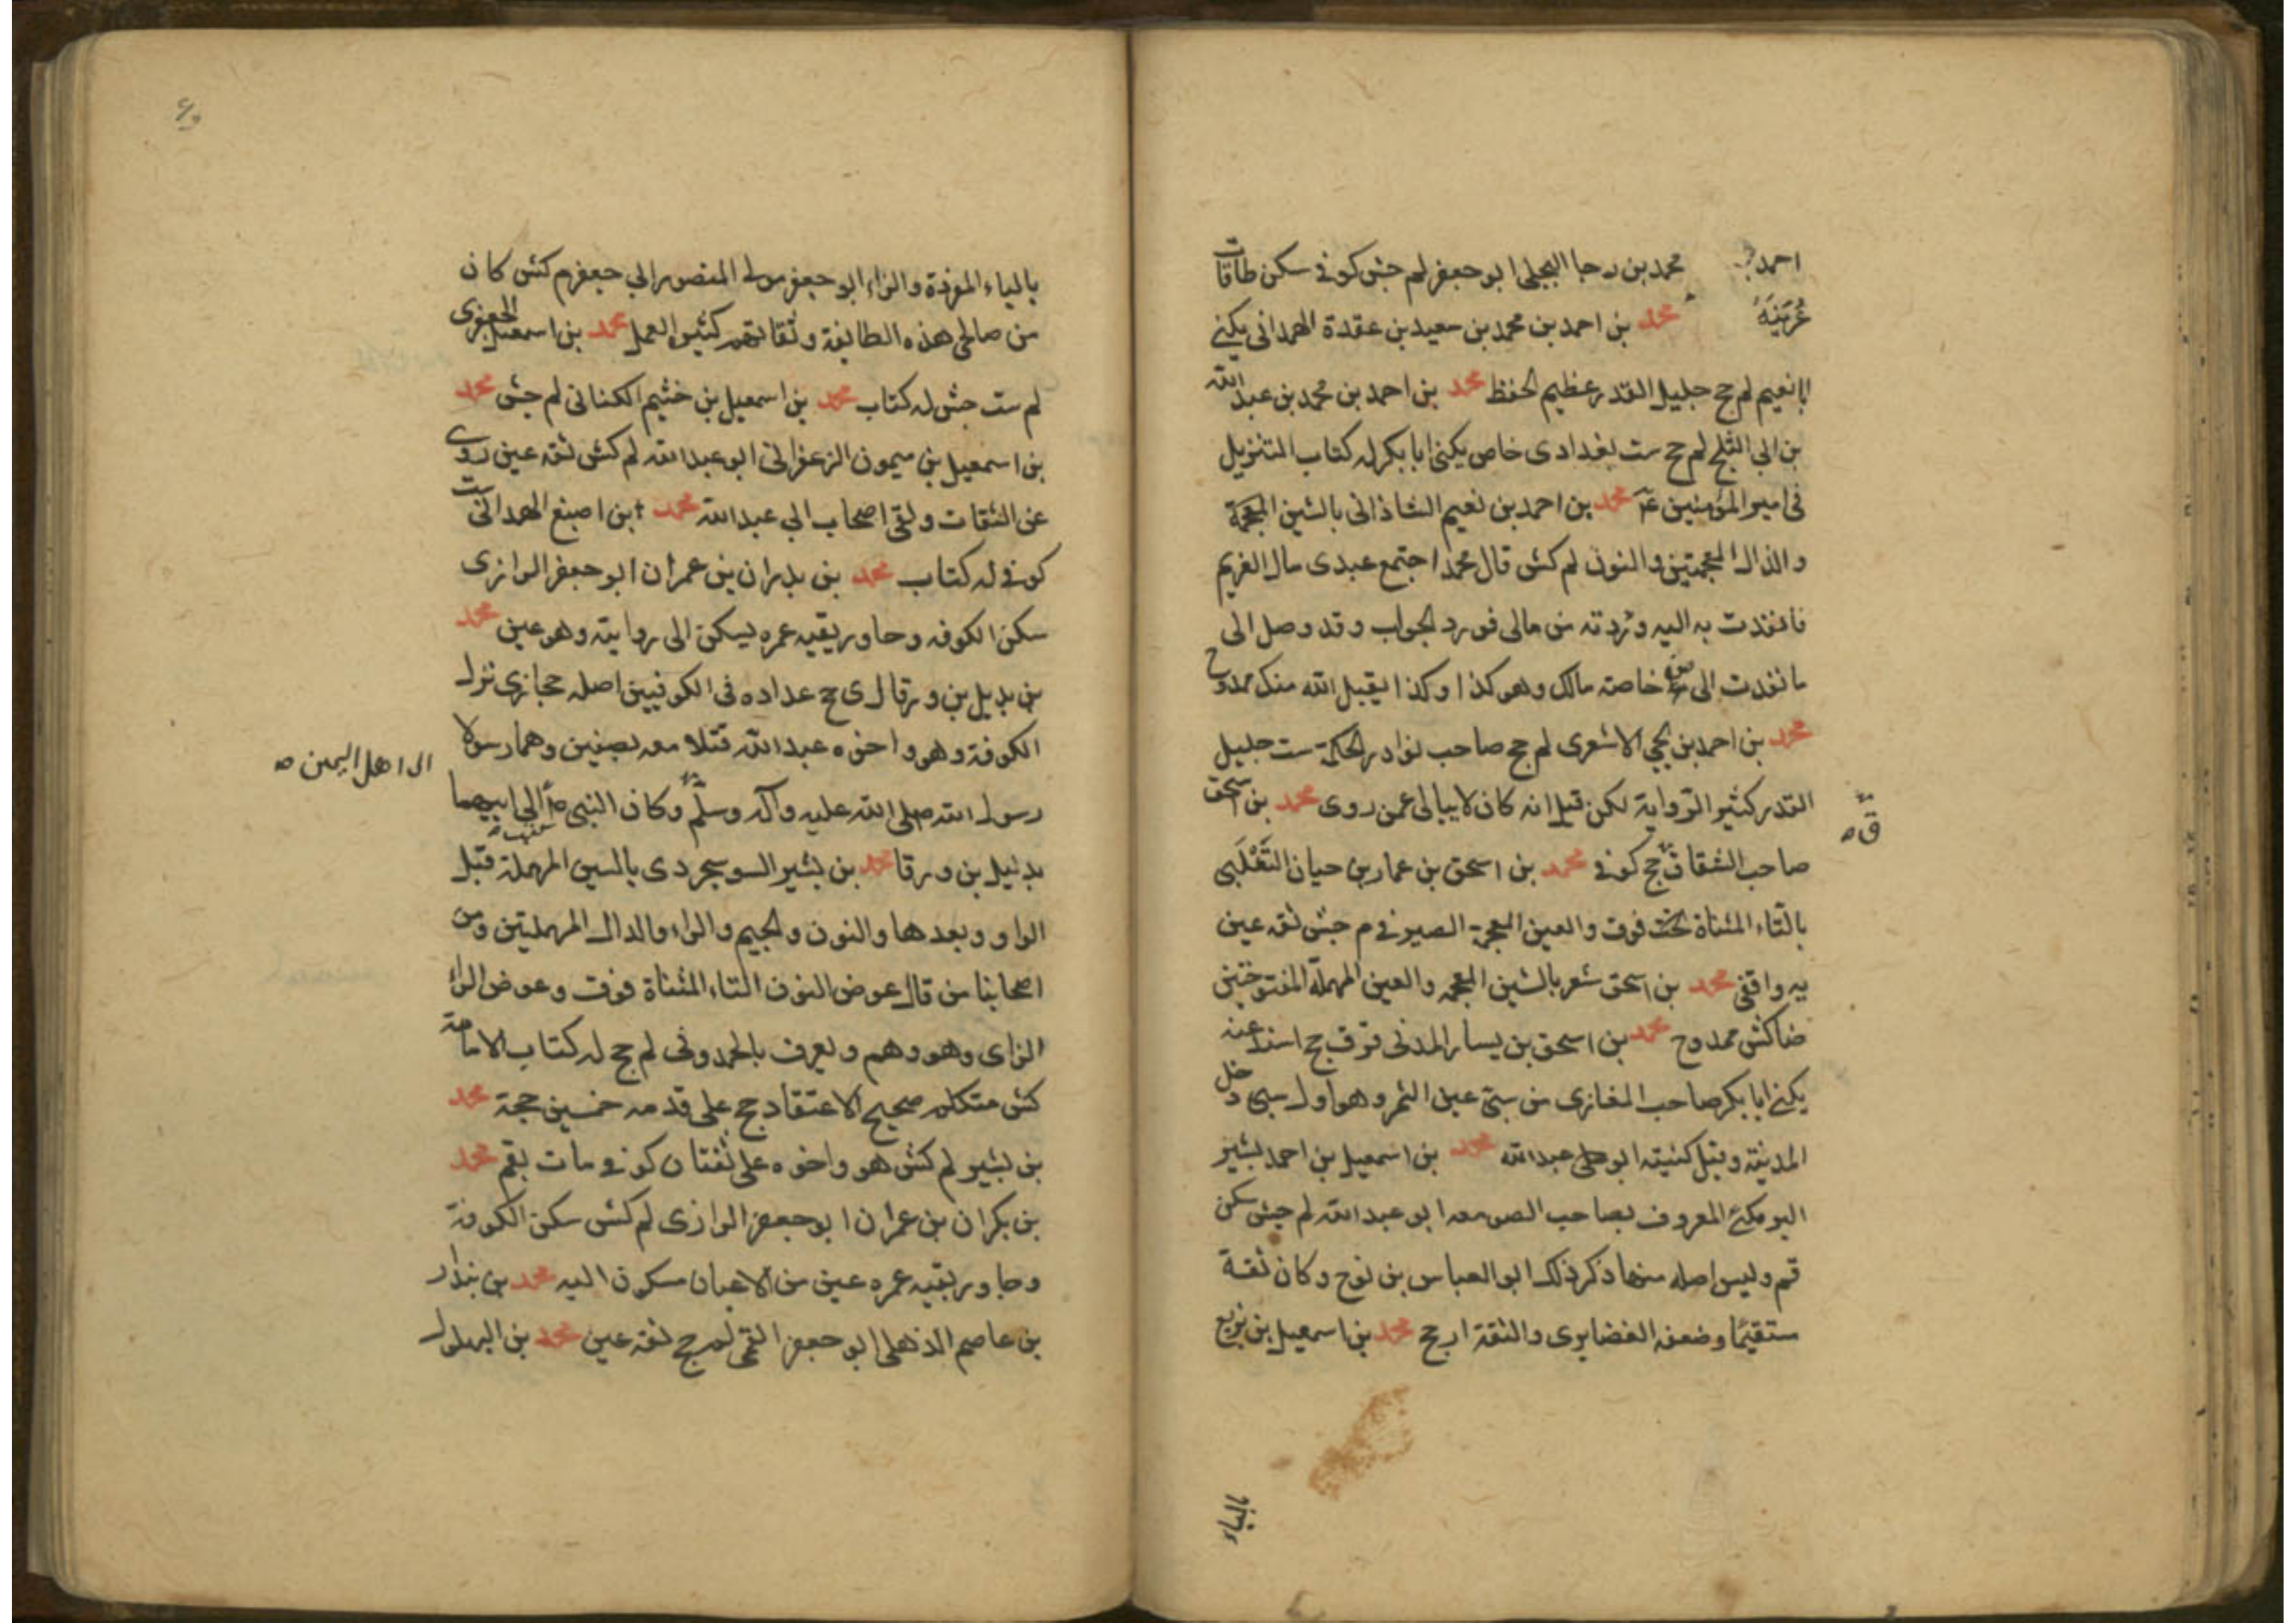 احمد بن محمد بن رجا البجلى ابو جعفر لم جش كوفى سكن طاقات
عُرَيْنَة محمد بن احمد بن محمد بن سعيد بن عقدة الهمدانى يكنى
ابا نعيم لم جج جليل القدر عظيم الحفظ محمد بن احمد بن محمد بن عبد الله
بن ابى الثلج لم جج ست بغدادى خاص يكنى ابا بكر له كتاب التنزيل
فى امير المؤمنين ع محمد بن احمد بن نعيم الشاذانى بالشين المعجمة
والذال المعجمتين والنون لم كش قال محمد اجتمع عبدى مال الغريم
فانفذت به اليه وزدته من مالى فورد الجواب وقد وصل الى
ما نفذت الى من خاصة مالك وهو كذا وكذا يقبل الله منك ممدوح
محمد بن احمد بن يحيى الاشعرى لم جج صاحب نوادر الحكمة ست جليل
القدر كثير الرواية لكن قيل انه كان لا يبالى عمن روى محمد بن اسحق
ق
صاحب الشقاق جج كوفى محمد بن اسحق بن عمار بن حيان التَغْلَبى
بالتاء المثناة تحت فوق والعين المعجمة الصيرفى م جش ثقه عين
به واقفى محمد بن اسحق شعر بالشين المعجمه والعين المهملة المفتوحتين
ضا كش ممدوح محمد بن اسحق بن يسار المدنى قر ق جج اسند عنه
يكنى ابا بكر صاحب المغازى من سبى عين التمر وهو اول سبى دخل
المدينة وقيل كنيته ابو عبد الله محمد بن اسمعيل بن احمد بشير
البرمكى المعروف بصاحب الصومعه ابو عبد الله لم جش سكن
قم وليس اصله منها ذكر ذلك ابو العباس بن نوح وكان ثقة
ستقيمًا وضعفه الغضايرى والثقة ارجح محمد بن اسمعيل بن بزيع
بالياء المفردة والزاء ابو جعفر مولى المنصور ابى جعفر م كش كان
من صالحى هذه الطايفة وثقاتهم كثير العمل محمد بن اسمعيل الجعفرى
لم ست جش له كتاب محمد بن اسمعيل بن خثيم الكنانى لم جش محمد
بن اسمعيل بن ميمون الزعفرانى ابو عبد الله لم كش ثقه عين روى
عن الثقات ولقى اصحاب ابى عبد الله محمد بن اصبغ الهمدانى ست
كوفى له كتاب محمد بن بدران بن عمران ابو جعفر الرازى
سكن الكوفه وجاور بقيه عمره يسكن الى روايته وهو عين محمد
بن بديل بن ورقا ل ى جج عداده فى الكوفيين اصله حجازى نزل
الكوفة وهو واخوه عبد الله قتلا معه بصفين وهما رسولا
رسول الله صلى الله عليه وآله وسلم وكان النبى ص الى ابيهما
الى اهل اليمن
بديل بن ورقا محمد بن بشير السوسنجردى بالسين المهملة قبل
الواو وبعدها والنون والجيم والراء والدال المهملتين ومن
اصحابنا من قال عوض النون التاء المثناة فوق وعوض الراء
الزاى وهو وهم ويعرف بالحمدونى لم جج له كتاب الامامة
كش متكلم صحيح الاعتقاد حج على قدمه خمسين حجة محمد
بن بشير لم كش هو واخوه على ثقتان كوفى مات بقم محمد
بن بكران بن عمران ابو جعفر الرازى لم كش سكن الكوفة
وجاور بقيه عمره عين من الاعيان مسكون اليه محمد بن بندار
بن عاصم الذهلى ابو جعفر القمى لم جج ثقه عين محمد بن البهلول